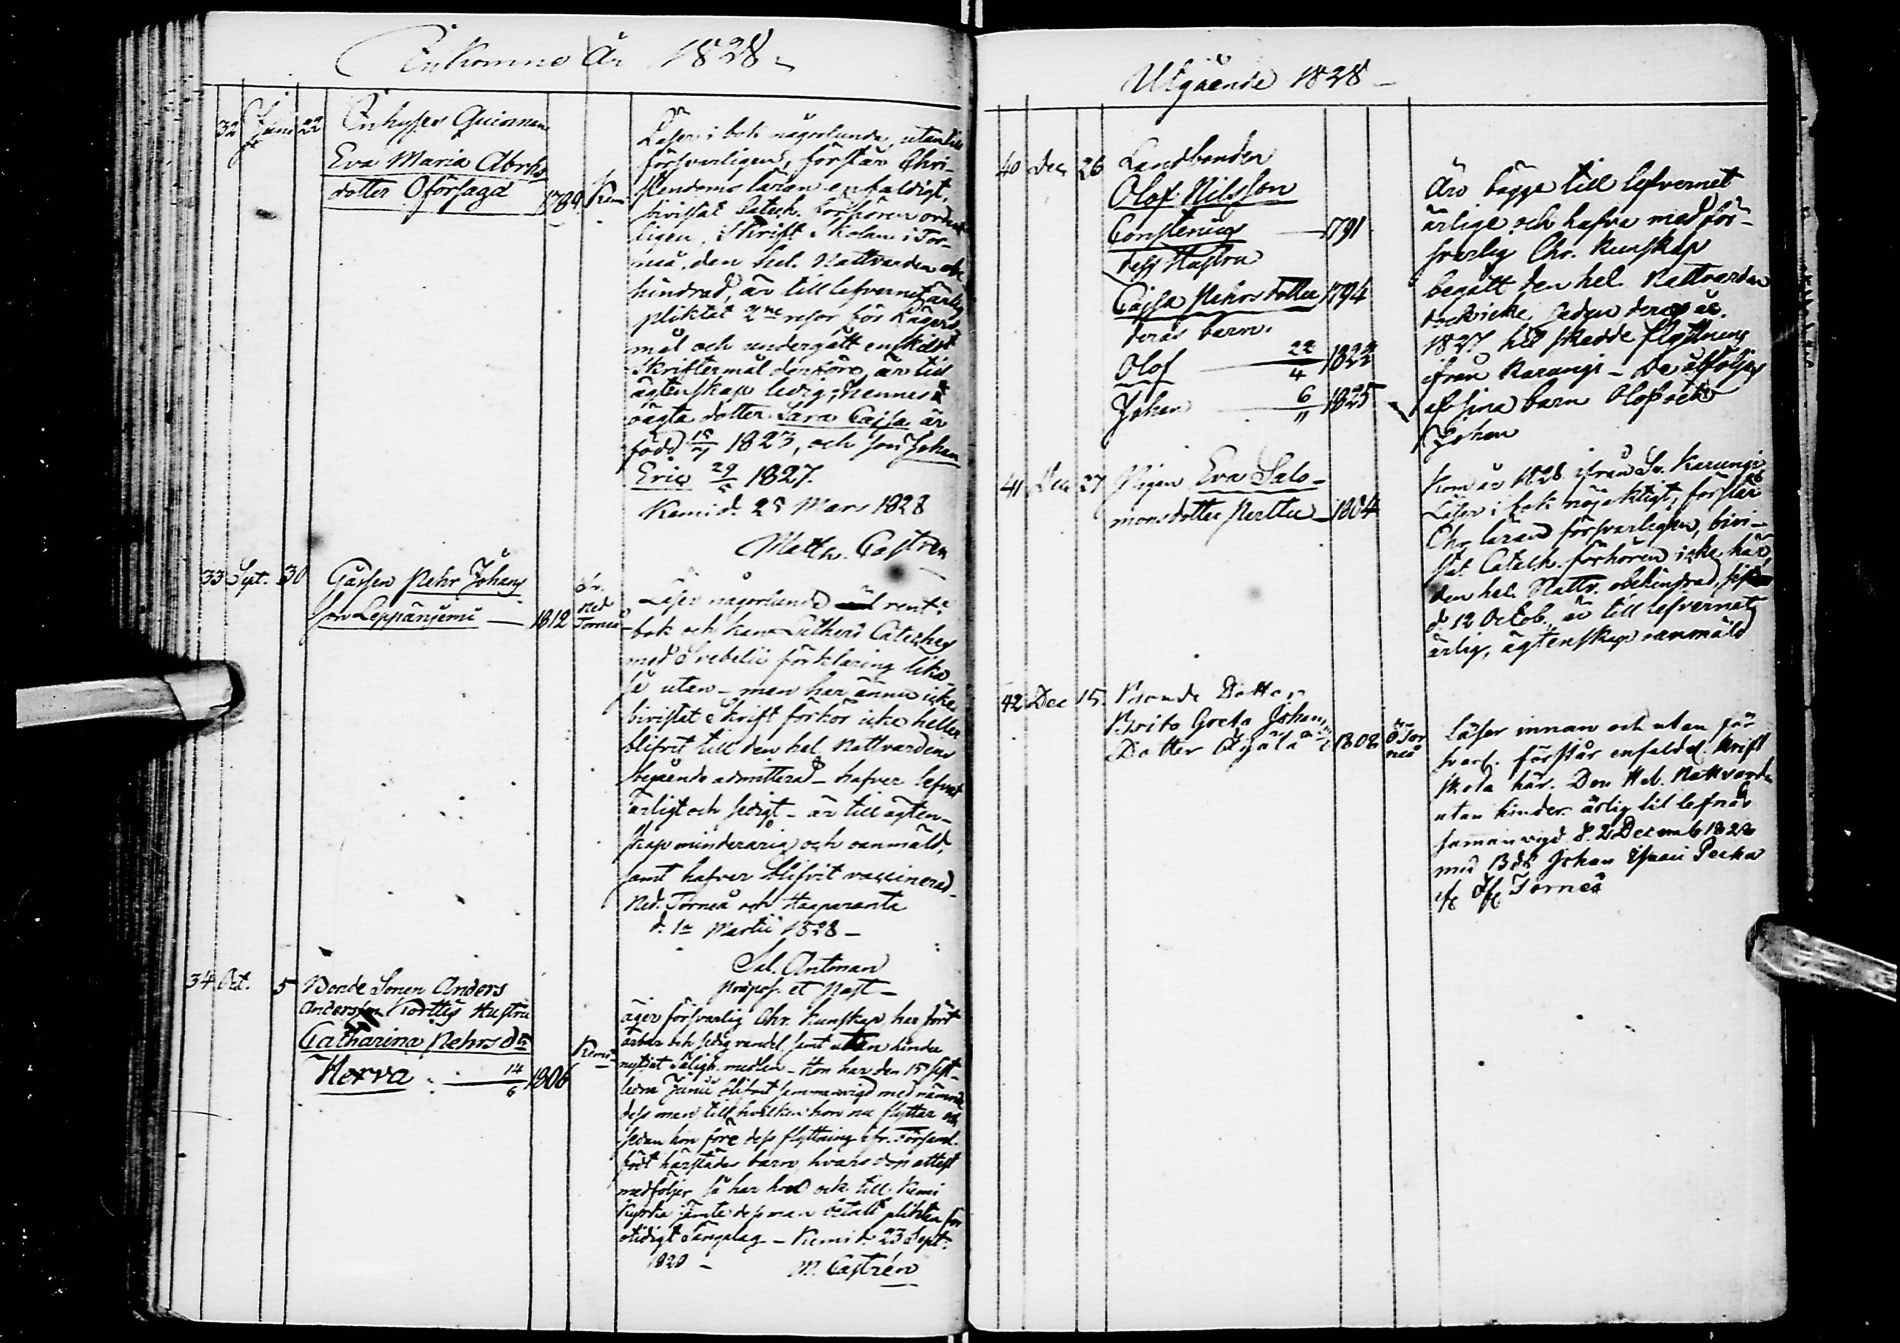 Inkomne År 1828
32 Juni 22 Inhyses Quinnan
Eva Maria Abrhs
dotter Oförsagd 1789 Kemi
Läser i bok någorlunda, utantill
försvarligen, förstår Chri-
stendoms läran enfaldigt,
bivistat Catech. förhören ordent
ligen, Skrift Skolan i Tor-
neå, den hel. Nattvarden obe
hindrad, är till lefvernet ärlig
pliktat 2ne resor för Lägers
mål och undergått enskildt
Skriftermål derföre, är till
ägtenskap ledig, hennes
oägta dotter Sara Cajsa är
född 15/7 1823, och son Johan
Eric 29/5 1827.
Kemi d. 25 Mars 1828
Math. Castrén
33 Sept. 30 Gossen Pehr Johans
son Leppäniemi — 1812 Sv.
Ned
Torneå
Läser någorlunda rent i
bok och kan Lutheri Cateches
med Svebelii förklaring lika-
så utan - men har ännu icke
bivistat Skrift förhör icke heller
blifvit till den hel. Nattvardens
begående admitterad - hafver lefvat
ärligt och sedigt - är till ägten-
skap minderårig och oanmäld,
samt hafver blifvit vaccinerad -
Ned. Torneå och Haaparanta
d. 1a Martii 1828 —
Sal. Antman
Præpos. et Past -
34 Oct. 5 Bonde Sonen Anders
Andersson Korttis Hustru
Catharina Pehrs dr
Herva 14/6 1806 Kemi
äger försvarlig Chr. Kunskap, har fört
ärbar och sedig vandel, samt utan hinder
nyttjat Salighs medlen - Hon har den 15 sist-
ledne Junii blifvit sammanvigd med nämnde
dess man till hvilken hon nu flyttar och
sedan hon före dess flyttning ifr. Församl.
födt härstädes barn, hvars dop attest
medföljer, så har hon ock till Kemi
Kyrka jämte dess man betalt plikten för
otidigt Sängelag - Kemi d. 23 Sept.
1828 — M. Castrén
Utgående 1828 —
40 Dec 26 Landbonden
Olof Nilsson
Consterius — 1791
dess Hustru
Cajsa Pehrs dotter 1794
deras barn.
Olof 22/4 1822
Johan 6/11 1825
Äro bägge till lefvernet
ärlige och hafva med för-
svarlig Chr. Kunskap
begått den hel. Nattvarden
dock icke sedan deras år
1827 hit skedde flyttning
ifrån Karungi - De åtföljas
af sina barn Olof och
Johan
41 Dec 27 Pigan Eva Salo-
monsdotter Perttu — 1804
Kom år 1828 ifrån Sv. Karungi
Läser i bok nöjaktigt, förstår
Chr. läran försvarligen, bivi-
stat Catech. förhören icke här
den hel. Nattv. obehindrad, sist
d. 12 Octob., är till lefvernet
ärlig, ägtenskap oanmäld
42 Dec 15. Bonde Dotter
Brita Greta Johans
Dotter 1808 Ö Tor
neå
Läser innan och utan för
svarl. förstår enfaldl. Skrift
skola här. Den Hel. Nattvarden
utan hinder. ärlig till lefnad
sammanvigd d. 2 Decemb 1828
med Bds. Johan Pecka
Torneå